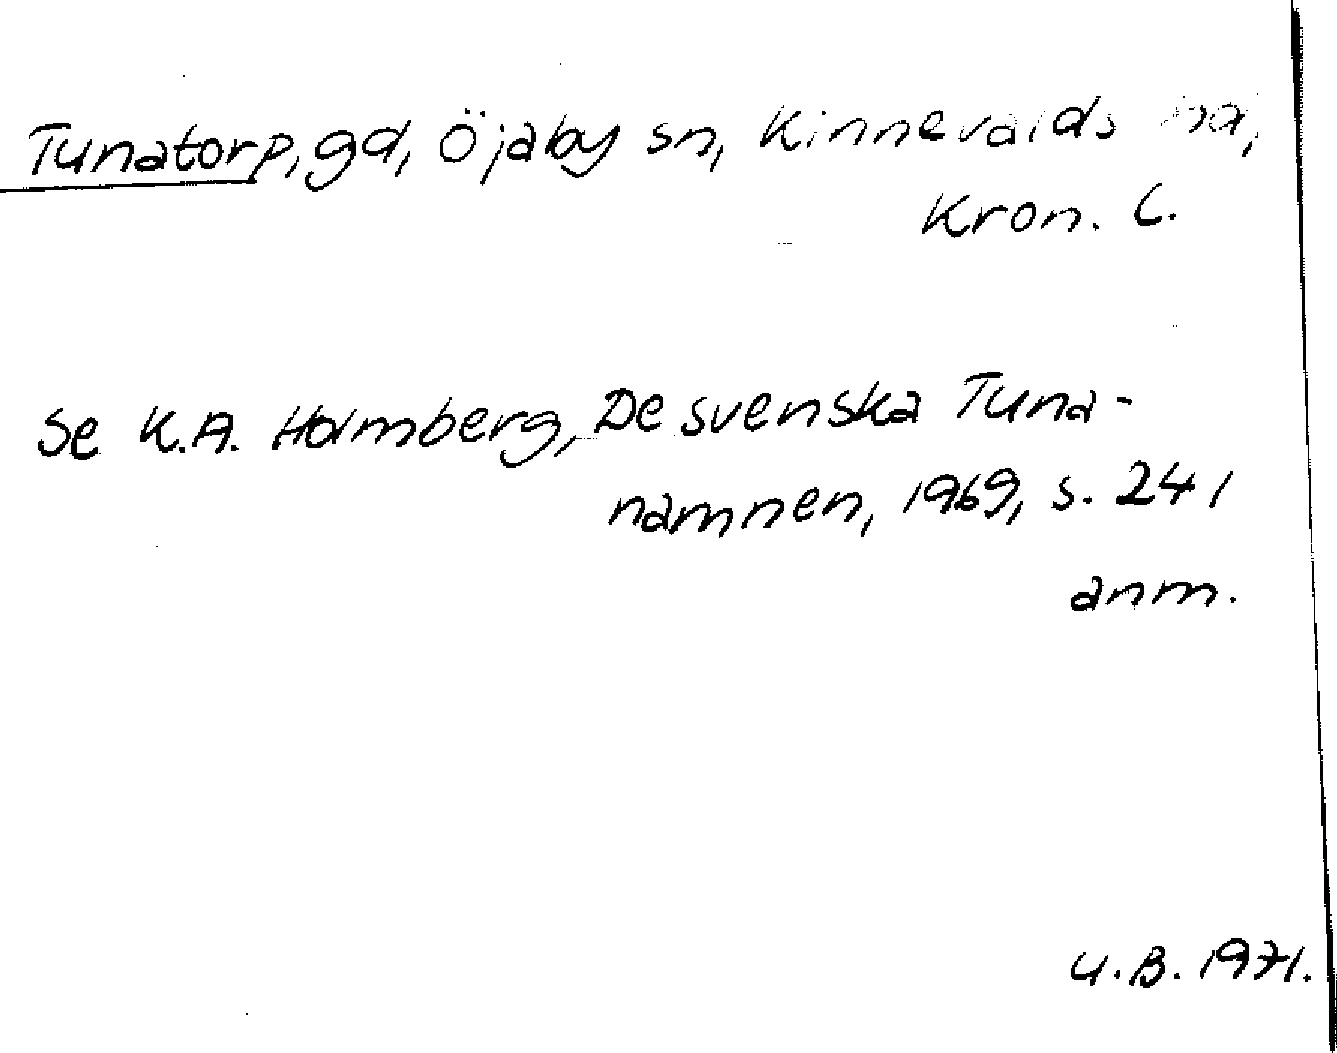 Tunatorp, gd, Öjaby sn, Kinnevalds hd,
Kron. l.
Se K.A. Holmberg, De svenska Tuna-
namnen, 1969, s. 241
anm.
U.B. 1971.